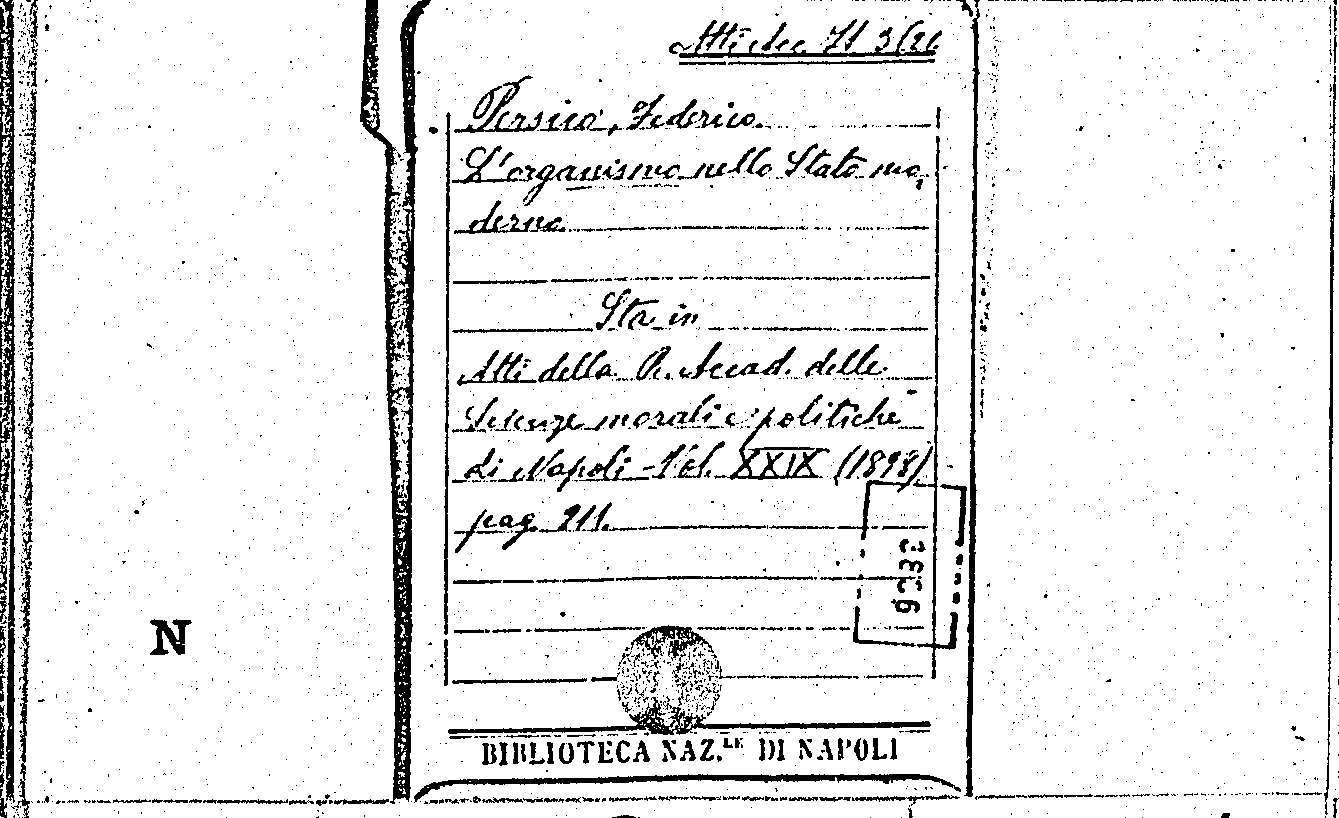 Atti Acc. II 3(26
Persico, Federico.
L'organismo nello Stato mo,
derno.
Sta in
Atti della R. Accad. delle
Scienze morali e politiche
di Napoli - Vol. XXIX (1898)
pag. 211.
N
BIBLIOTECA NAZ.LE DI NAPOLI